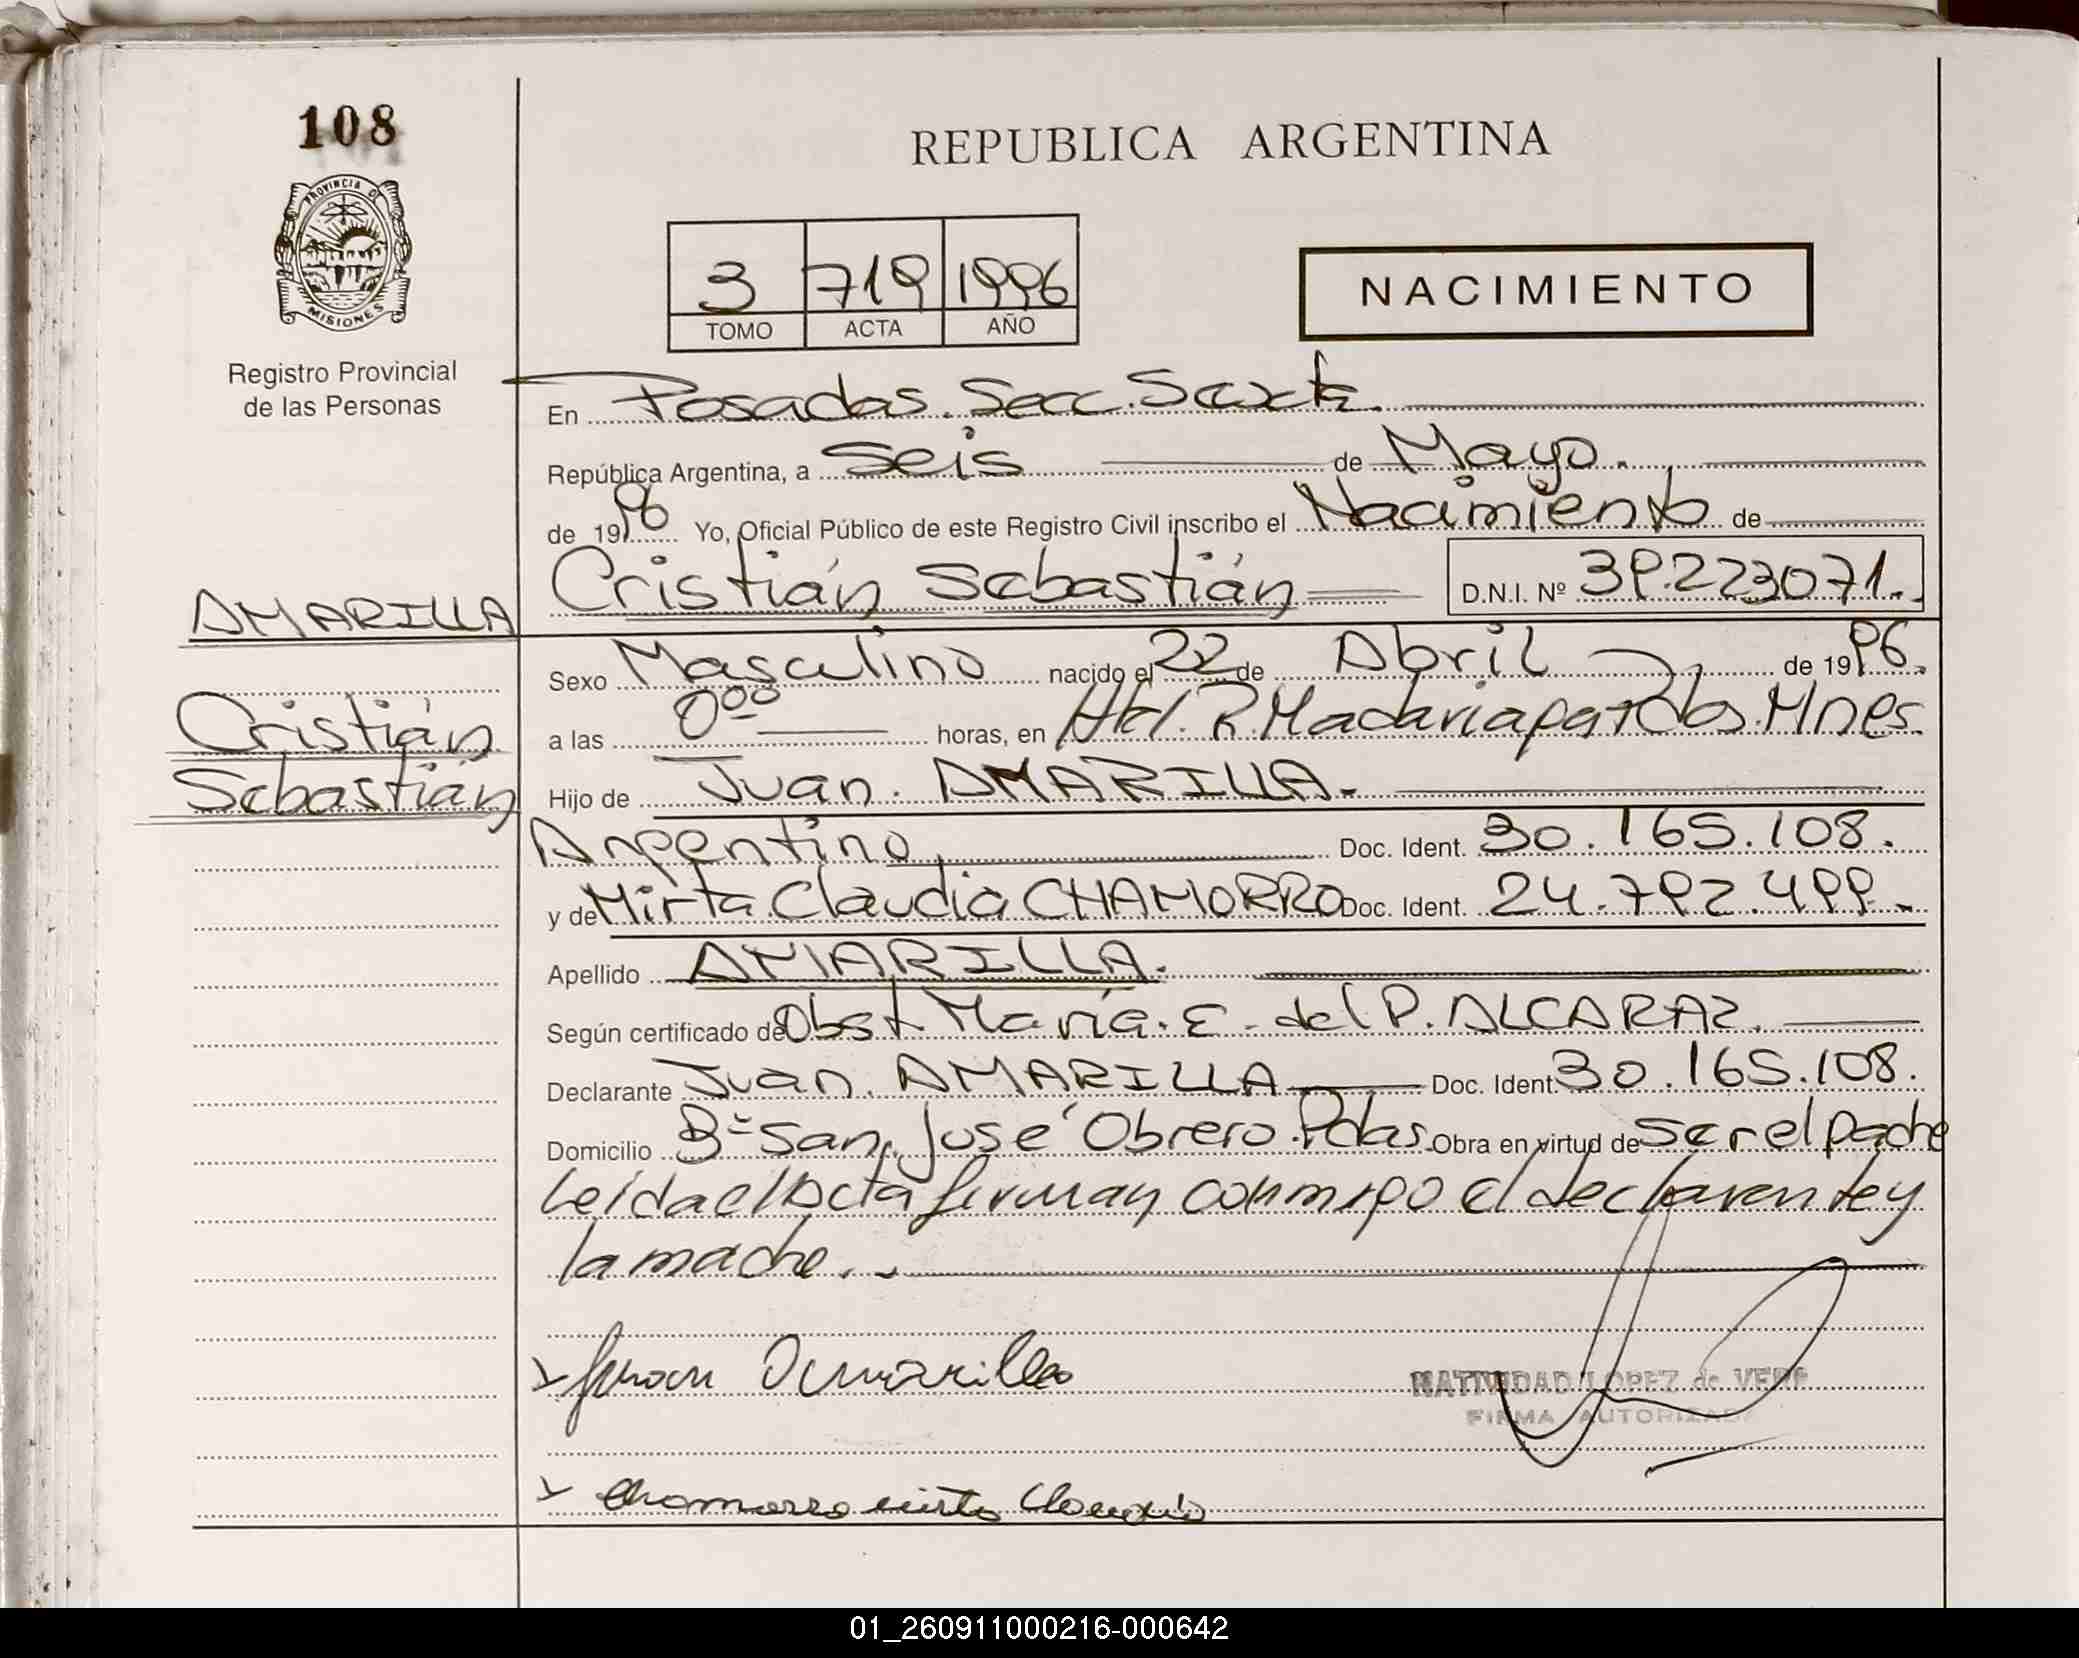 108
REPUBLICA ARGENTINA
PROVINCIA DE
MISIONES
3 719 1996
TOMO ACTA AÑO
NACIMIENTO
Registro Provincial
de las Personas
En Posadas. Secc. Sexta.
República Argentina, a Seis de Mayo.
de 1996 Yo, Oficial Público de este Registro Civil inscribo el Nacimiento de
Cristián Sebastián D.N.I. Nº 39.223071.
AMARILLA
Sexo Masculino nacido el 22 de Abril de 1996.
Cristián
a las 0 00 horas, en Htal. R. Madariaga-Pdas. Mnes.
Sebastián
Hijo de Juan. AMARILLA.
Argentino Doc. Ident. 30.165.108.
y de Mirta Claudia CHAMORRO Doc. Ident. 24.792.499.-
Apellido AMARILLA.
Según certificado de Obst. María. E. del P. ALCARAZ.
Declarante Juan. AMARILLA Doc. Ident. 30.165.108.
Domicilio Bº San José Obrero. Pdas. Obra en virtud de Ser el padre
Leída el Acta firman conmigo el declarante y
la madre..-
Juan Amarilla
NATIVIDAD LOPEZ de VERA
FIRMA AUTORIZADA
Chamorro Mirta Claudia
01_260911000216-000642